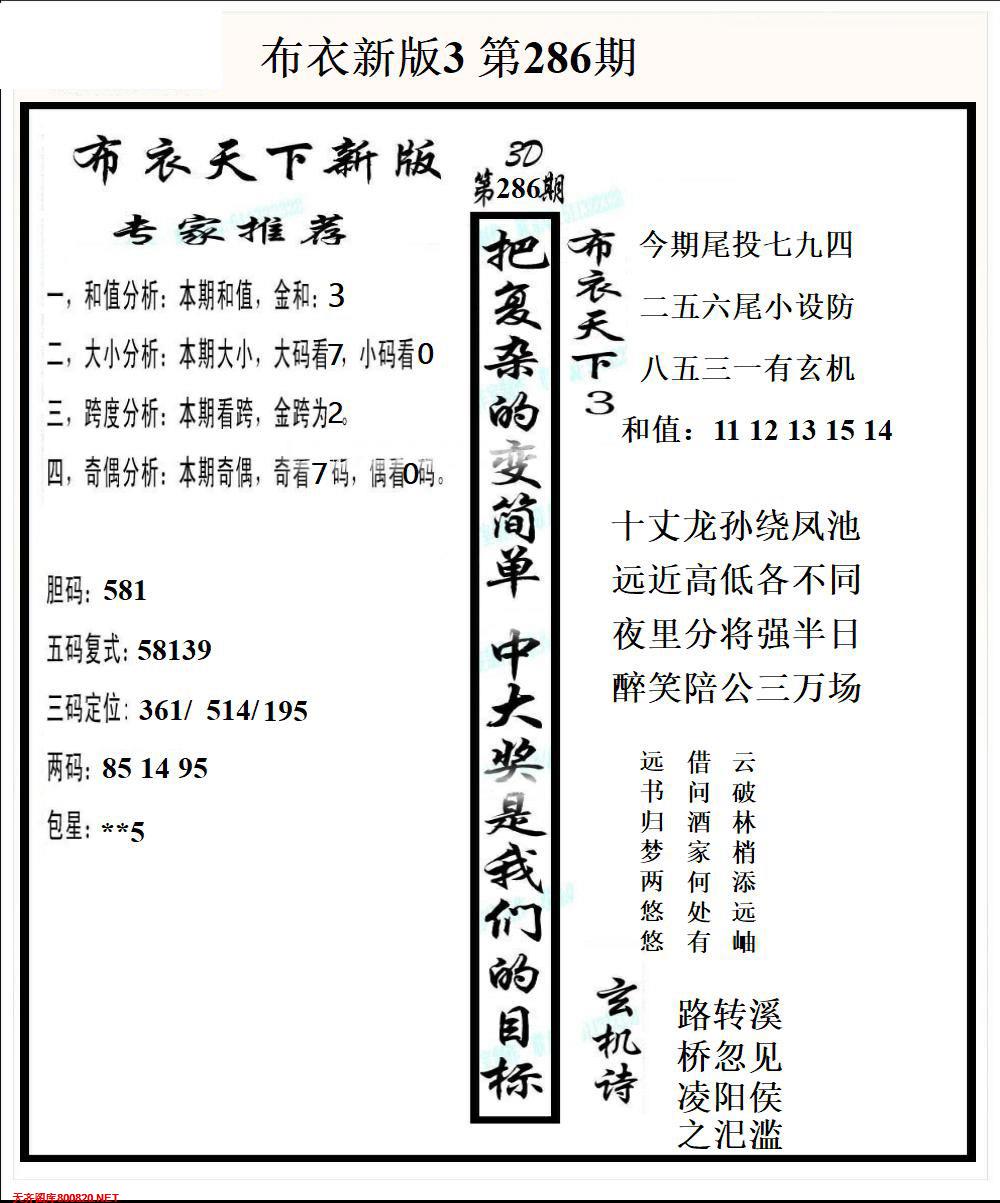 布衣新版3 第286期
布衣天下新版
专家推荐
一，和值分析：本期和值，金和：3
二，大小分析：本期大小，大码看7，小码看0
三，跨度分析：本期看跨，金跨为2。
四，奇偶分析：本期奇偶，奇看7码，偶看0码。
胆码：581
五码复式：58139
三码定位：361/ 514/195
两码：85 14 95
包星：**5
3D
第286期
把复杂的变简单 中大奖是我们的目标
布衣天下3
今期尾投七九四
二五六尾小设防
八五三一有玄机
和值：11 12 13 15 14
十丈龙孙绕凤池
远近高低各不同
夜里分将强半日
醉笑陪公三万场
云破林梢添远岫
借问酒家何处有
远书归梦两悠悠
玄机诗
路转溪
桥忽见
凌阳侯
之汜滥
天齐图库800820.NET